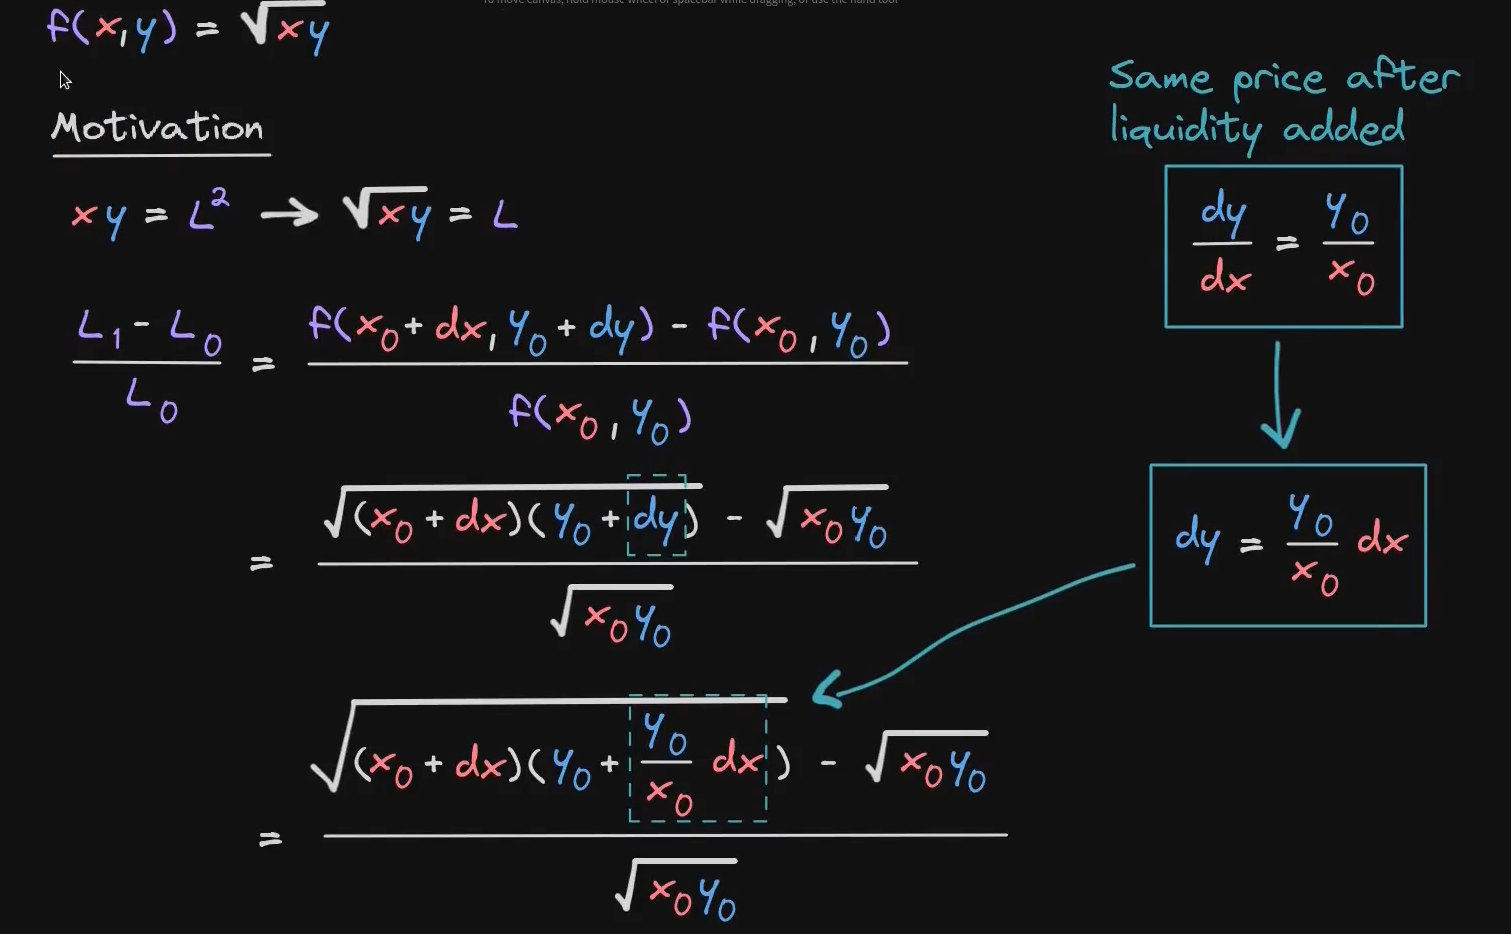 To move canvas, hold mouse wheel or spacebar while dragging, or use the hand tool
f(x,y) = √xy
Motivation
xy = L² → √xy = L
(L₁ - L₀) / L₀ = (f(x₀ + dx, y₀ + dy) - f(x₀, y₀)) / f(x₀, y₀)
= (√(x₀ + dx)(y₀ + dy) - √x₀y₀) / √x₀y₀
= (√(x₀ + dx)(y₀ + y₀/x₀ dx) - √x₀y₀) / √x₀y₀
Same price after
liquidity added
dy/dx = y₀/x₀
dy = y₀/x₀ dx